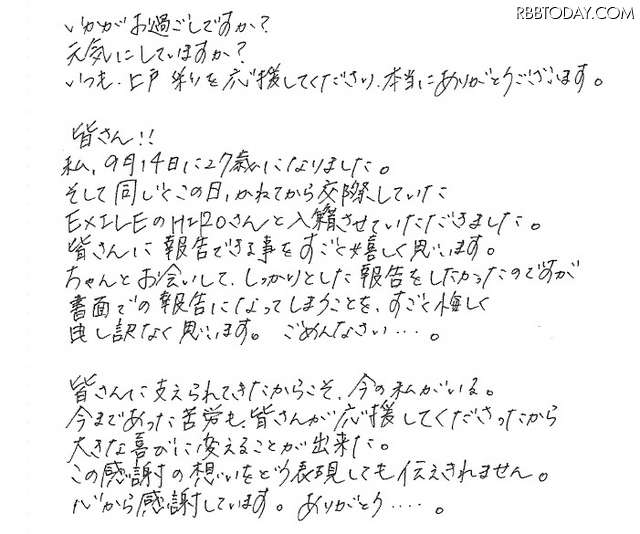 RBBTODAY.COM
いかがお過ごしですか？
元気にしていますか？
いつも、上戸 彩を応援してくださり、本当にありがとうございます。
皆さん!!
私、9月14日に27歳になりました。
そして同じくこの日、かねてから交際していた
EXILEのHIROさんと入籍させていただきました。
皆さんに報告できる事をすごく嬉しく思います。
ちゃんとお会いして、しっかりとした報告をしたかったのですが
書面での報告になってしまうことを、すごく悔しく
申し訳なく思います。ごめんなさい…。
皆さんに支えられてきたからこそ、今の私がいる。
今まであった苦労も、皆さんが応援してくださったから
大きな喜びに変えることが出来た。
この感謝の想いをどう表現しても伝えきれません。
心から感謝しています。ありがとう….。